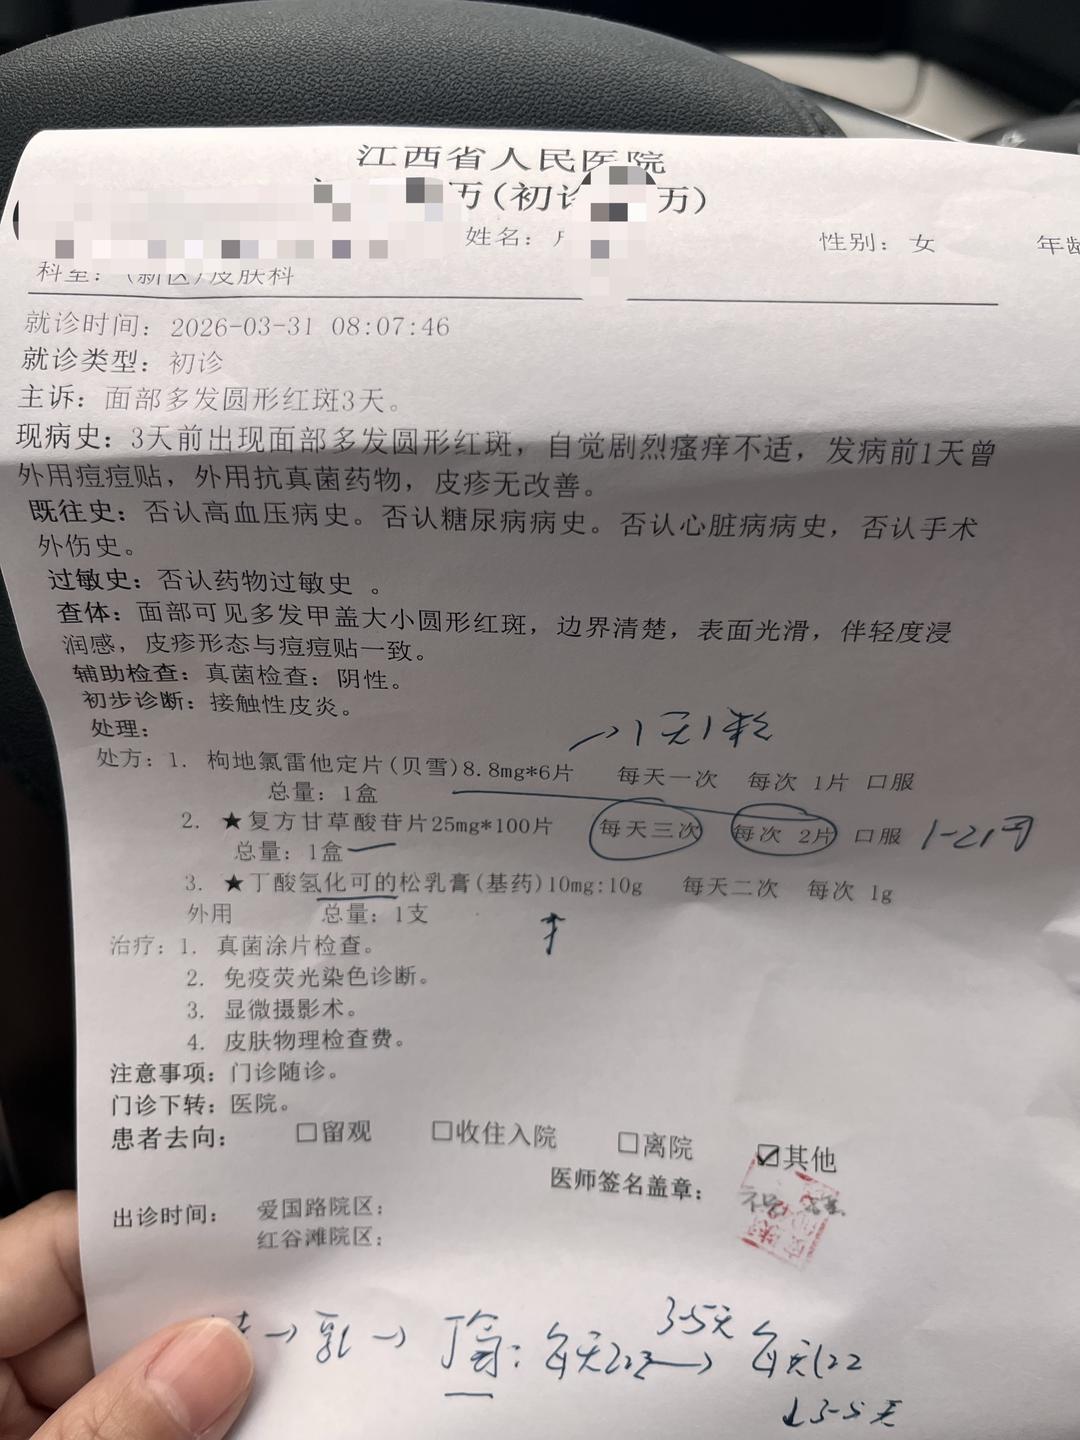 江西省人民医院
万(初诊 万)
姓名: 性别: 女 年龄
科室: (新区)皮肤科
就诊时间: 2026-03-31 08:07:46
就诊类型: 初诊
主诉: 面部多发圆形红斑3天。
现病史: 3天前出现面部多发圆形红斑, 自觉剧烈瘙痒不适, 发病前1天曾
外用痘痘贴, 外用抗真菌药物, 皮疹无改善。
既往史: 否认高血压病史。否认糖尿病病史。否认心脏病病史, 否认手术
外伤史。
过敏史: 否认药物过敏史 。
查体: 面部可见多发甲盖大小圆形红斑, 边界清楚, 表面光滑, 伴轻度浸
润感, 皮疹形态与痘痘贴一致。
辅助检查: 真菌检查: 阴性。
初步诊断: 接触性皮炎。
处理:
1天1粒
处方: 1. 枸地氯雷他定片(贝雪)8.8mg*6片 每天一次 每次 1片 口服
总量: 1盒
2. ★复方甘草酸苷片25mg*100片 每天三次 每次 2片 口服 1-2周
总量: 1盒
3. ★丁酸氢化可的松乳膏(基药)10mg:10g 每天二次 每次 1g
外用 总量: 1支
治疗: 1. 真菌涂片检查。
2. 免疫荧光染色诊断。
3. 显微摄影术。
4. 皮肤物理检查费。
注意事项: 门诊随诊。
门诊下转: 医院。
患者去向: □留观 □收住入院 □离院 ☑其他
医师签名盖章:
出诊时间: 爱国路院区:
红谷滩院区:
3-5天
→乳→ 丁: 每天2次→ 每天1次
↓3-5天